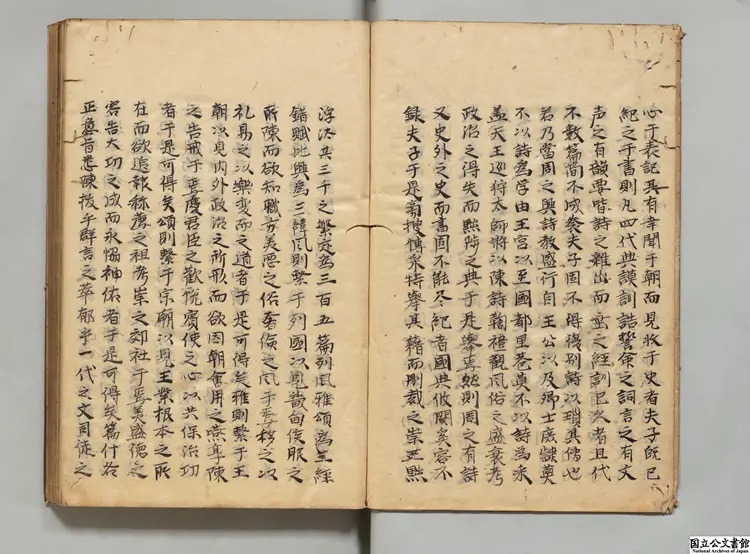 心于表記具有聿聞于朝而見收于史者夫子既已
紀之于書則凡四代典謨訓誥誓命之詞言之有文
声之有韻要皆詩之雜出而並之經訓已久者且代
不數篇簡不成袠夫子固不得復別詩以瑣其傳也
若乃當周之興詩教盛行自王公以及卿士庶隷莫
不以詩為學由王宮以至國都里巷莫不以詩為米
盖天王巡狩太師將以陳詩藉禮觀風俗之盛衰考
政治之得失而黜陟之典于是舉焉然則周之有詩
又史外之史而書固不能尽紀者國典攸関奚容不
録夫子于是著搜博采特舉其籍而刪裁之崇正黜
浮汰其三千之繁定為三百五篇列風雅頌為三經
錯賦比興為三緯風則繫于列國以見畿甸侯服之
所陳而欲知職方美惡之俗奢儉之風于焉移之以
礼易之以樂變而之道者于是可得矣雅則繫于王
朝以見内外政治之所形而欲因朝會用之燕享陳
之告戒于焉慶君臣之歡悦賓使之心以共保治功
者于是可得矣頌則繫于宗廟以見王業根本之所
在而欲追報称廣之祖考崇之郊社于焉美盛德之
容告大功之成而永惱神佑者于是可得矣篇什各
正意旨悉陳拔乎群言之萃郁乎一代之文司徒之
国立公文書館
National Archives of Japan